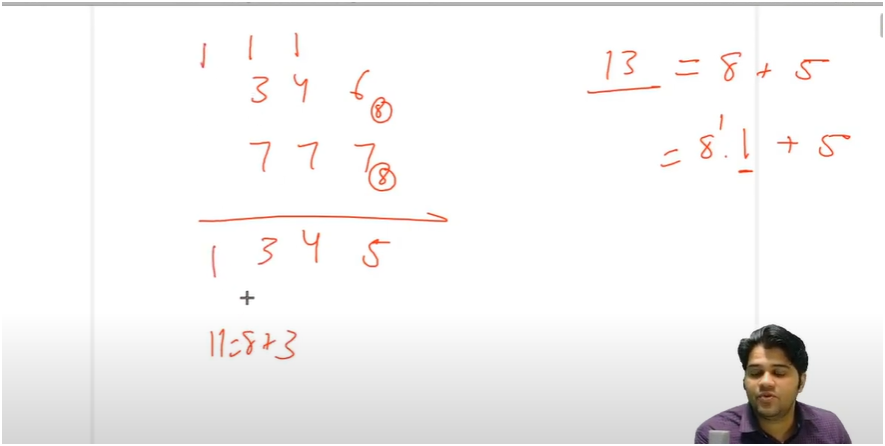 1 1 1
3 4 6 8
7 7 7 8
1 3 4 5
11=8+3
13 = 8 + 5
= 8¹.1 + 5